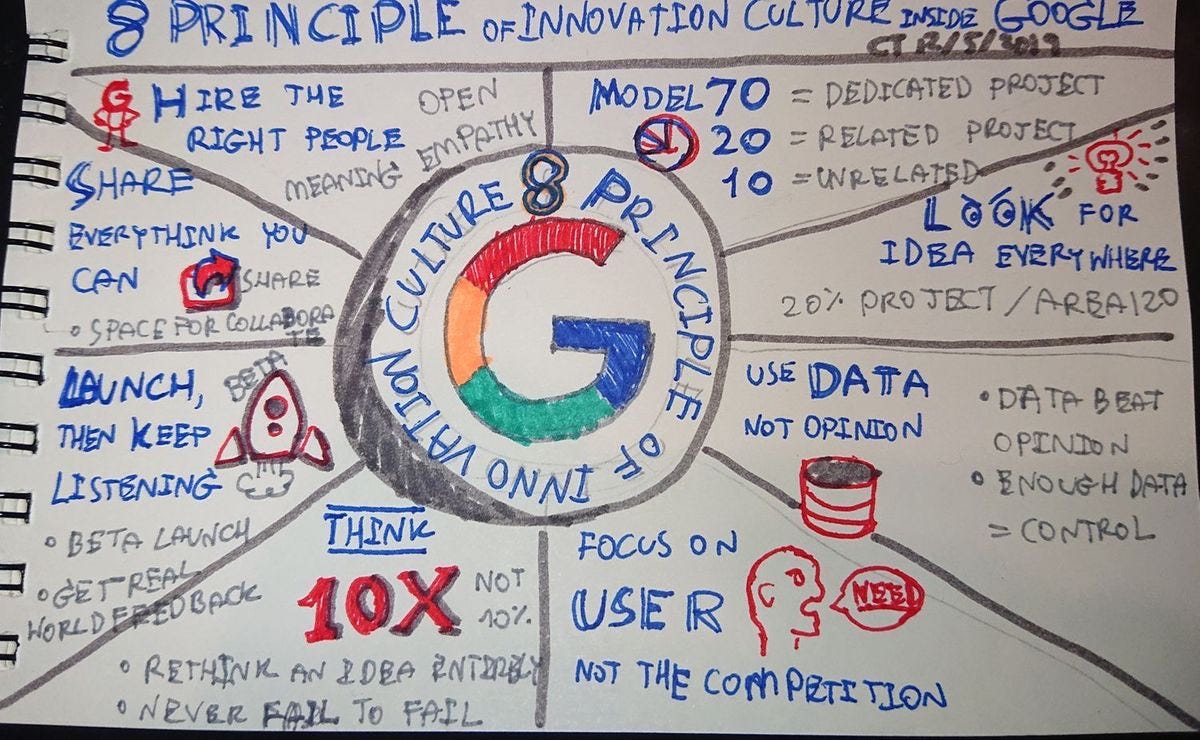 8 PRINCIPLE OF INNOVATION CULTURE INSIDE GOOGLE
CT 12/5/2019
HIRE THE
RIGHT PEOPLE
OPEN
EMPATHY
MEANING
MODEL 70 = DEDICATED PROJECT
20 = RELATED PROJECT
10 = UNRELATED
LOOK FOR
IDEA EVERYWHERE
20% PROJECT / AREA120
USE DATA
NOT OPINION
• DATA BEAT
OPINION
• ENOUGH DATA
= CONTROL
FOCUS ON
USER
NOT THE COMPETITION
NEED
THINK
10X NOT
10%
• RETHINK AN IDEA ENTIRELY
• NEVER FAIL TO FAIL
LAUNCH,
THEN KEEP
LISTENING
BETA
• BETA LAUNCH
• GET REAL
WORLD FEEDBACK
SHARE
EVERYTHINK YOU
CAN
SHARE
• SPACE FOR COLLABORA
TE
8 PRINCIPLE OF INNOVATION CULTURE
G